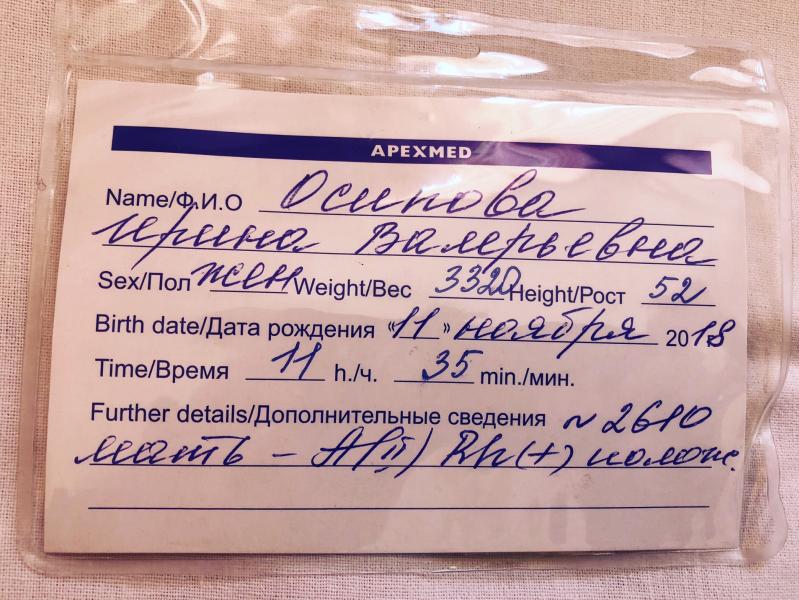 APEXMED
Name/Ф.И.О Осипова
Ирина Валерьевна
Sex/Пол жен Weight/Вес 3320 Height/Рост 52
Birth date/Дата рождения «11» ноября 2018
Time/Время 11 h./ч. 35 min./мин.
Further details/Дополнительные сведения ~ 2610
мать - A(II) Rh(+) полож.